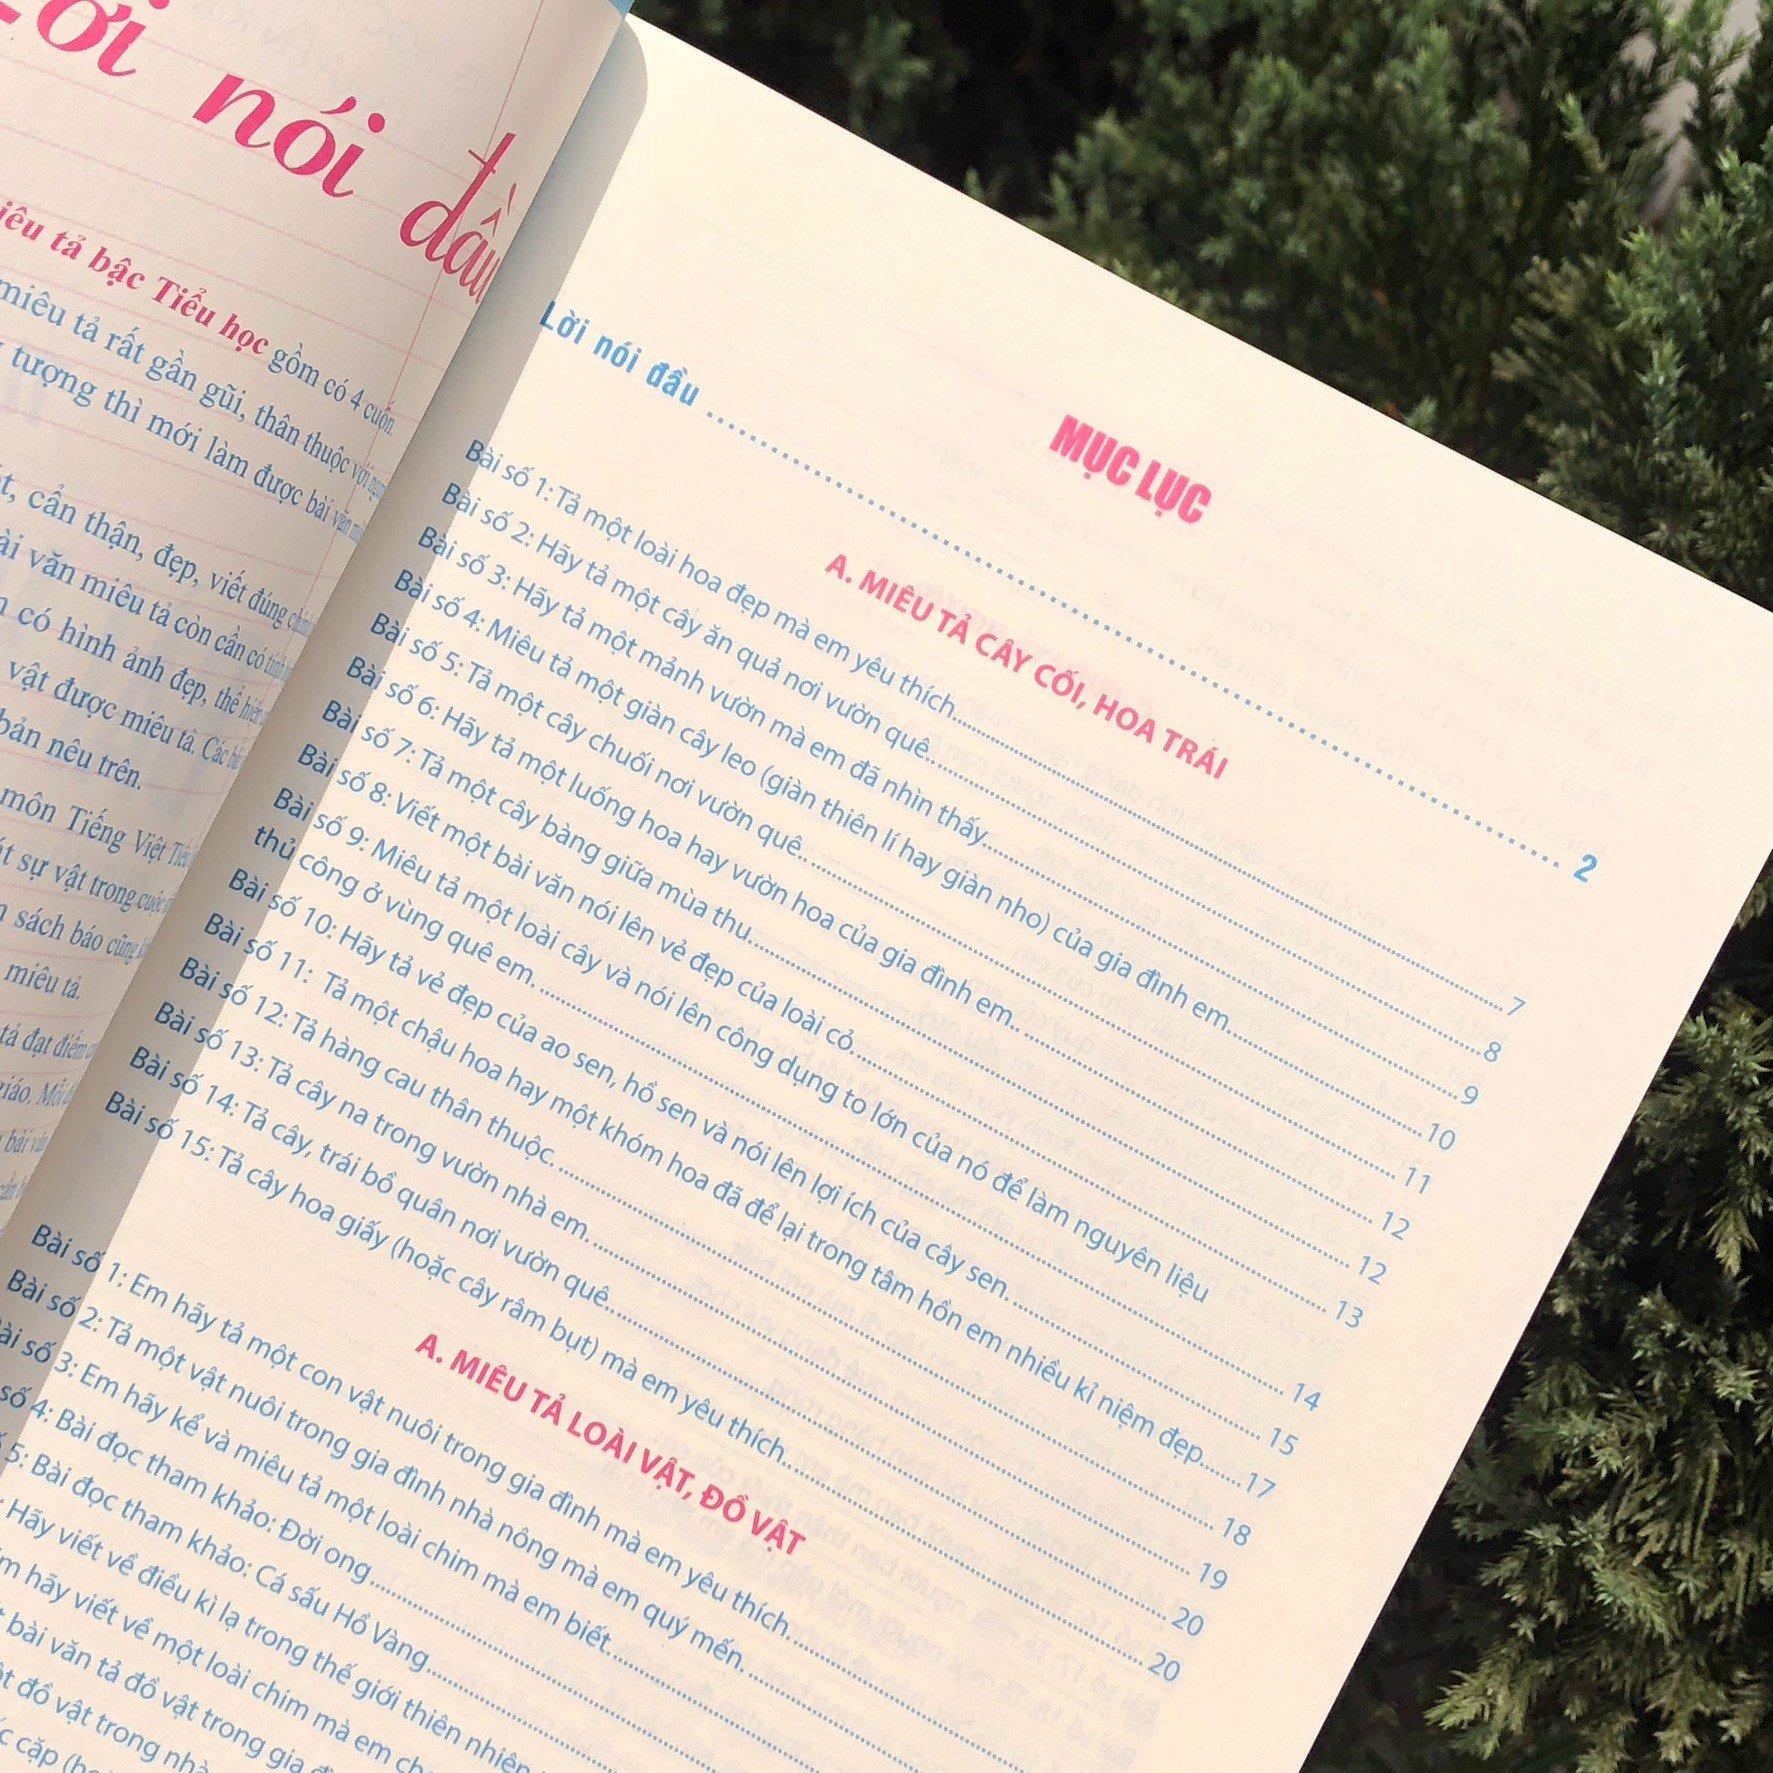 ời nói đầu
iêu tả bậc Tiểu học gồm có 4 cuốn.
miêu tả rất gần gũi, thân thuộc với
tượng thì mới làm được bài văn
cẩn thận, đẹp, viết đúng
văn miêu tả còn cần có
có hình ảnh đẹp, thể hiện
vật được miêu tả. Các
bản nêu trên.
môn Tiếng Việt
sự vật trong cuộc
sách báo cũng
miêu tả.
tả đạt điểm
giáo. Mỗi
bài
MỤC LỤC
Lời nói đầu 2
A. MIÊU TẢ CÂY CỐI, HOA TRÁI
Bài số 1: Tả một loài hoa đẹp mà em yêu thích 7
Bài số 2: Hãy tả một cây ăn quả nơi vườn quê 8
Bài số 3: Hãy tả một mảnh vườn mà em đã nhìn thấy 9
Bài số 4: Miêu tả một giàn cây leo (giàn thiên lí hay giàn nho) của gia đình em 10
Bài số 5: Tả một cây chuối nơi vườn quê 11
Bài số 6: Hãy tả một luống hoa hay vườn hoa của gia đình em 12
Bài số 7: Tả một cây bàng giữa mùa thu 12
Bài số 8: Viết một bài văn nói lên vẻ đẹp của loài cỏ 13
Bài số 9: Miêu tả một loài cây và nói lên công dụng to lớn của nó để làm nguyên liệu
thủ công ở vùng quê em. 14
Bài số 10: Hãy tả vẻ đẹp của ao sen, hồ sen và nói lên lợi ích của cây sen. 15
Bài số 11: Tả một chậu hoa hay một khóm hoa đã để lại trong tâm hồn em nhiều kỉ niệm đẹp 17
Bài số 12: Tả hàng cau thân thuộc 18
Bài số 13: Tả cây na trong vườn nhà em 19
Bài số 14: Tả cây, trái bồ quân nơi vườn quê 20
Bài số 15: Tả cây hoa giấy (hoặc cây râm bụt) mà em yêu thích 20
A. MIÊU TẢ LOÀI VẬT, ĐỒ VẬT
Bài số 1: Em hãy tả một con vật nuôi trong gia đình mà em yêu thích
Bài số 2: Tả một vật nuôi trong gia đình nhà nông mà em quý mến.
ài số 3: Em hãy kể và miêu tả một loài chim mà em biết
số 4: Bài đọc tham khảo: Đời ong
5: Bài đọc tham khảo: Cá sấu Hồ Vàng
Hãy viết về điều kì lạ trong thế giới thiên nhiên
hãy viết về một loài chim mà em
bài văn tả đồ vật trong gia
đồ vật trong nhà
cặp